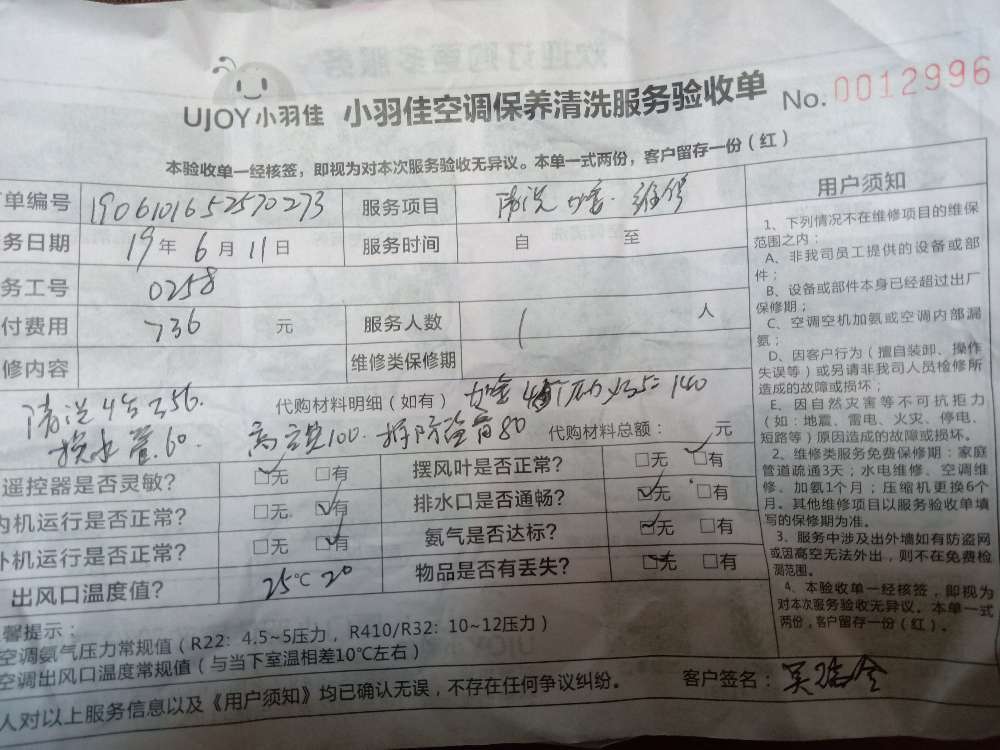 UJOY小羽佳 小羽佳空调保养清洗服务验收单 No. 0012996
本验收单一经核签，即视为对本次服务验收无异议。本单一式两份，客户留存一份（红）
单编号 1906101652570273 服务项目 清洗 维修
务日期 19年6月11日 服务时间 自 至
务工号 0258
付费用 736 元 服务人数 1 人
修内容 维修类保修期
清洗4台356. 代购材料明细（如有） 140
换水管.60. 高空费100. 拆防盗窗80 代购材料总额： 元
遥控器是否灵敏？ ☑无 □有 摆风叶是否正常？ □无 ☑有
内机运行是否正常？ □无 ☑有 排水口是否通畅？ ☑无 □有
外机运行是否正常？ □无 ☑有 氨气是否达标？ ☑无 □有
出风口温度值？ 25℃ 20 物品是否有丢失？ ☑无 □有
馨提示：
空调氨气压力常规值（R22：4.5~5压力，R410/R32：10~12压力）
空调出风口温度常规值（与当下室温相差10℃左右）
人对以上服务信息以及《用户须知》均已确认无误，不存在任何争议纠纷。 客户签名：
用户须知
1、下列情况不在维修项目的维保
范围之内：
A、非我司员工提供的设备或部
件；
B、设备或部件本身已经超过出厂
保修期；
C、空调空机加氨或空调内部漏
氨；
D、因客户行为（擅自装卸、操作
失误等）或另请非我司人员检修所
造成的故障或损坏；
E、因自然灾害等不可抗拒力
（如：地震、雷电、火灾、停电、
短路等）原因造成的故障或损坏。
2、维修类服务免费保修期：家庭
管道疏通3天；水电维修、空调维
修、加氨1个月；压缩机更换6个
月。其他维修项目以服务验收单填
写的保修期为准。
3、服务中涉及出外墙如有防盗网
或因高空无法外出，则不在免费检
测范围。
4、本验收单一经核签，即视为
对本次服务验收无异议。本单一式
两份，客户留存一份（红）。